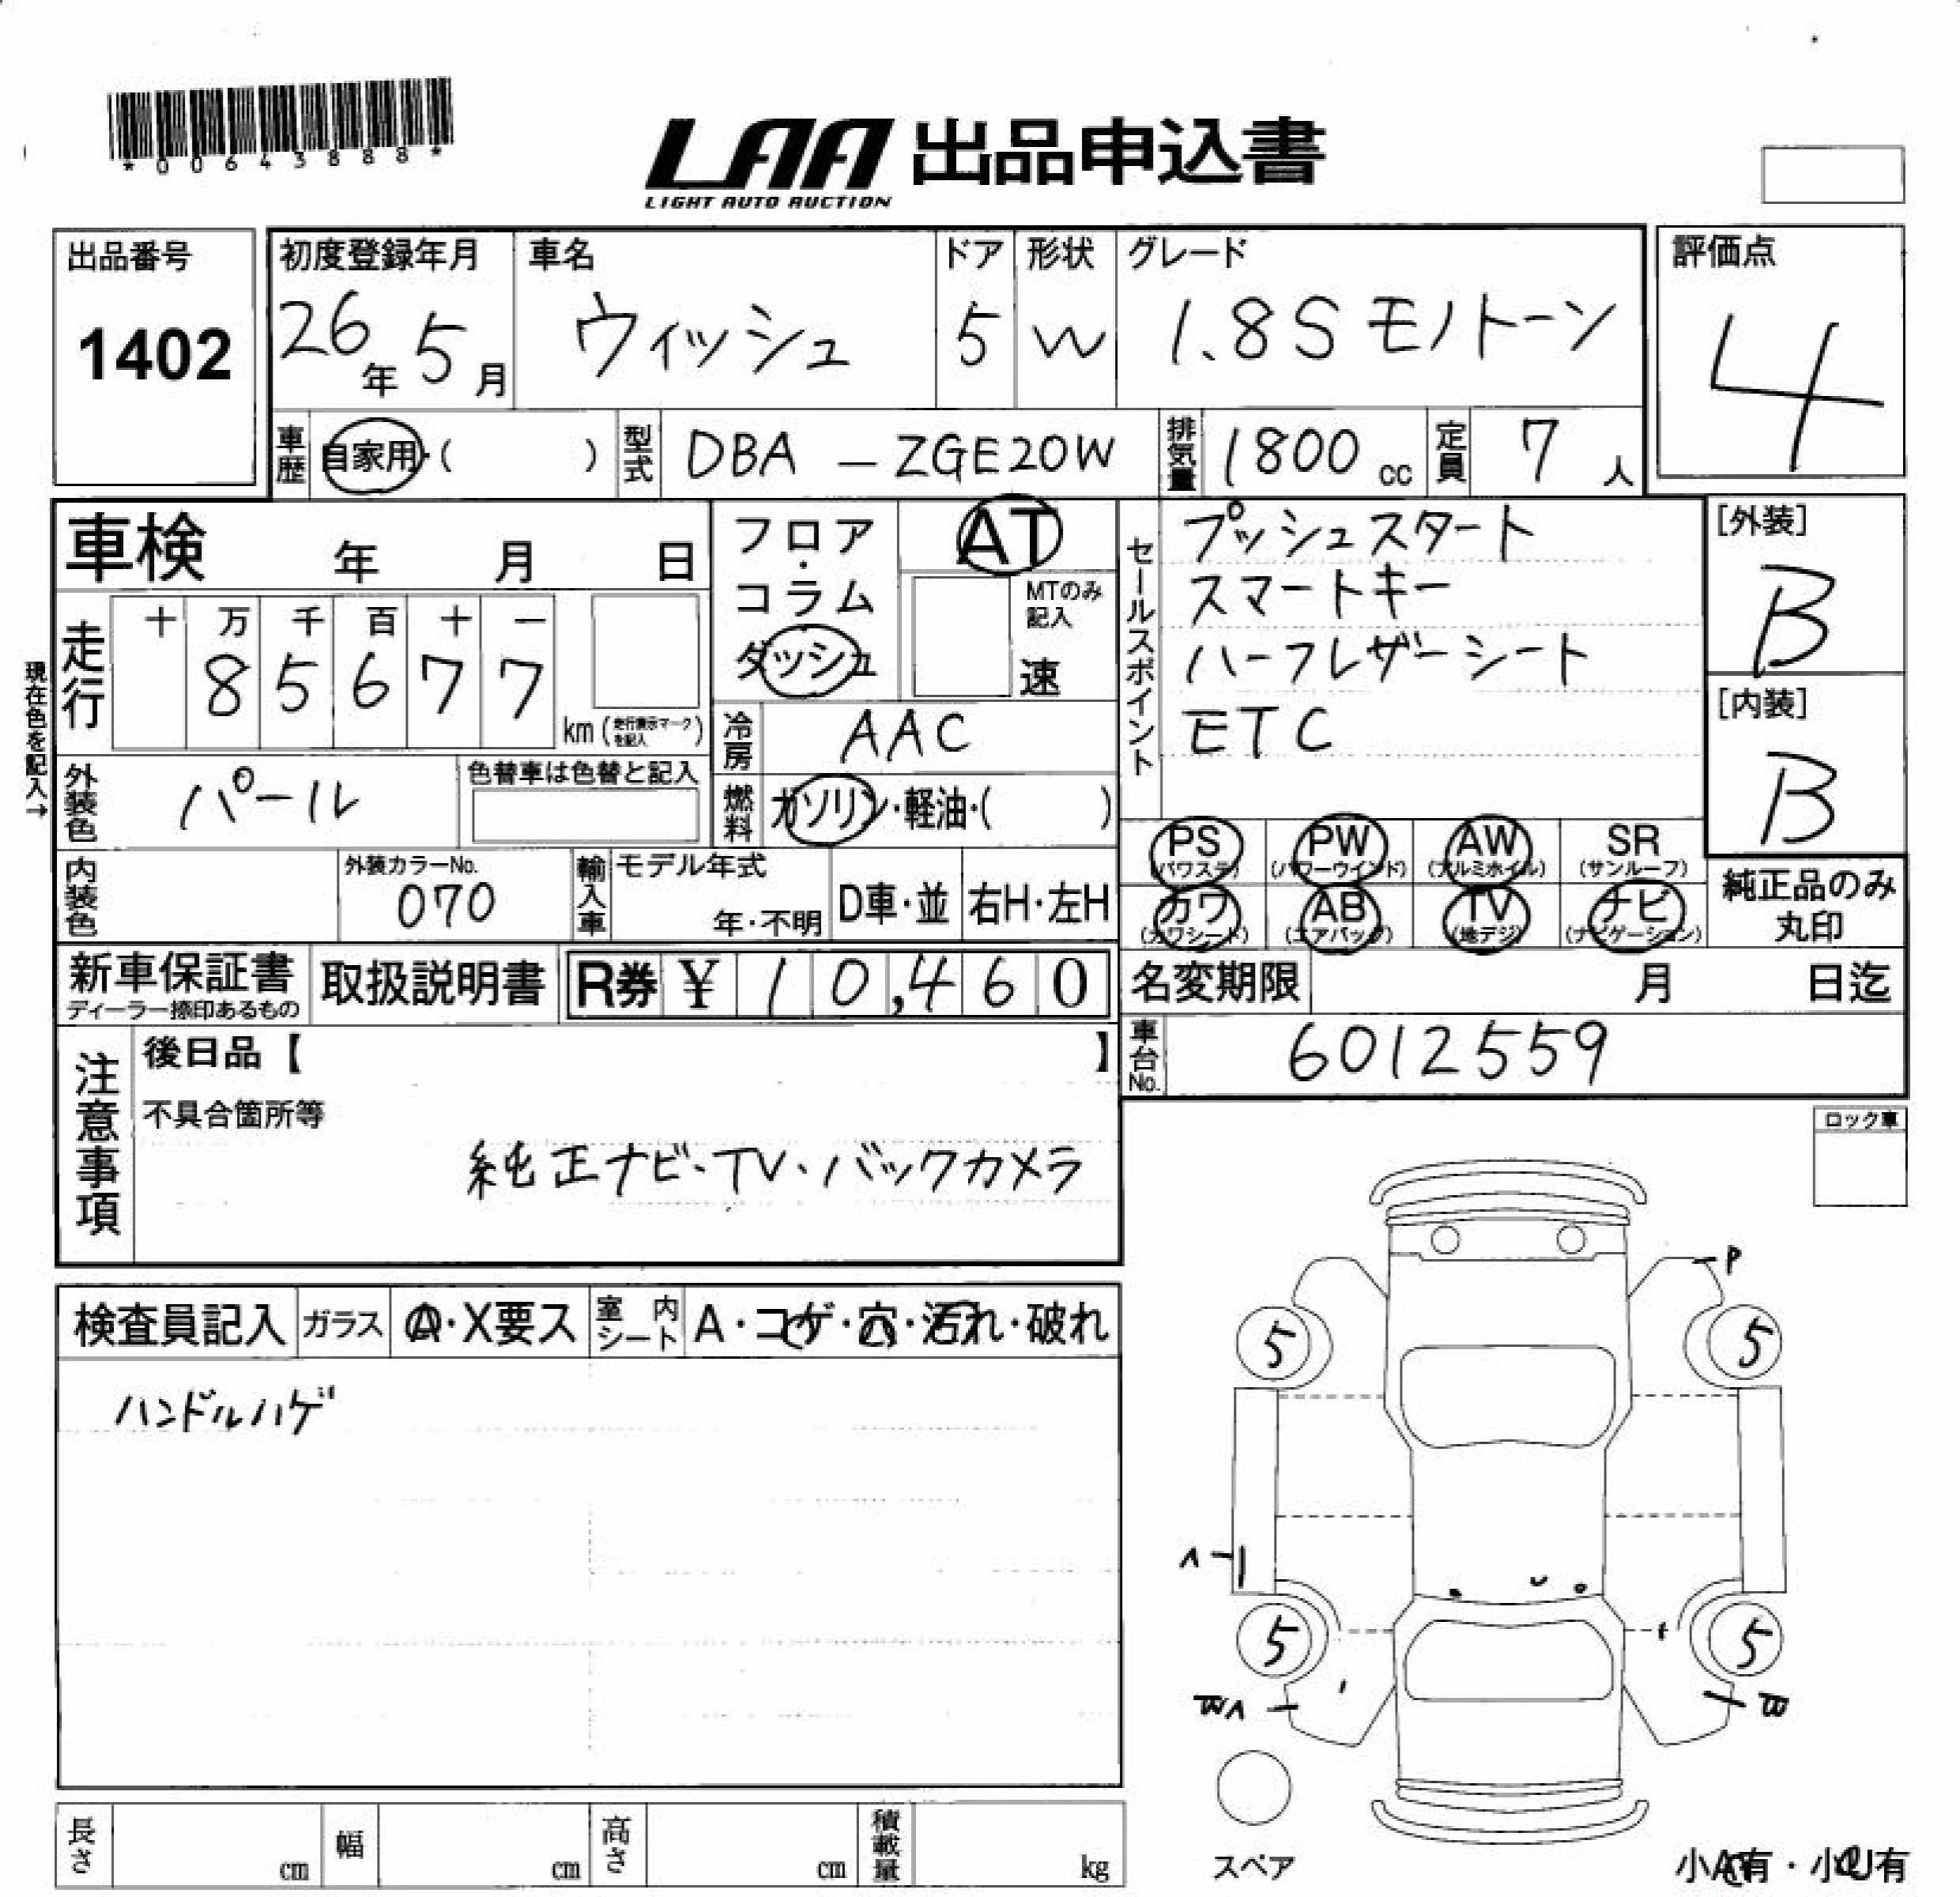 *00643888*
LAA 出品申込書
LIGHT AUTO AUCTION
出品番号 1402
初度登録年月 26年 5月
車名 ウィッシュ
ドア 5
形状 W
グレード 1.8S モノトーン
評価点 4
車歴 自家用・( )
型式 DBA - ZGE20W
排気量 1800 cc
定員 7 人
車検 年 月 日
フロア・コラム ダッシュ
AT
MTのみ記入 速
セールスポイント
プッシュスタート
スマートキー
ハーフレザーシート
ETC
[外装] B
[内装] B
現在色を記入→
走行 十 万 千 百 十 一
8 5 6 7 7 km (走行表示マークを記入)
冷房 AAC
外装色 パール
色替車は色替と記入
燃料 ガソリン・軽油・( )
PS (パワステ) PW (パワーウインド) AW (アルミホイル) SR (サンルーフ)
カワ (カワシート) AB (エアバック) TV (地デジ) ナビ (ナビゲーション)
純正品のみ丸印
内装色
外装カラーNo. 070
輸入車 モデル年式 年・不明 D車・並 右H・左H
新車保証書 ディーラー捺印あるもの
取扱説明書
R券 ¥ 10,460
名変期限 月 日迄
車台No. 6012559
注意事項
後日品【 】
不具合箇所等
純正ナビ・TV・バックカメラ
ロック車
検査員記入 ガラス A・X要ス 室内シート A・コゲ・穴・汚れ・破れ
ハンドルハゲ
P
5 5
5 5
スペア
長さ cm 幅 cm 高さ cm 積載量 kg
小A有・小U有